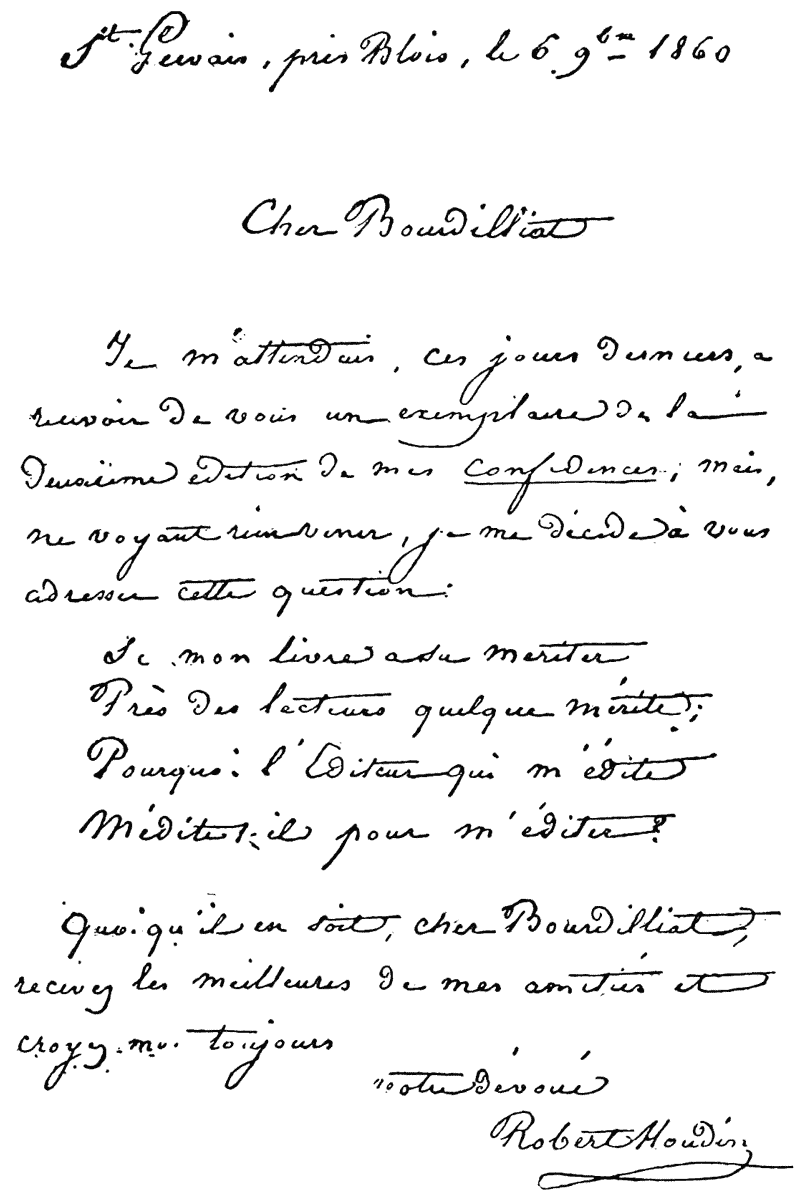 St. Gervais, près Blois, le 6 9bre 1860
Cher Bourdilliat
Je m'attendais, ces jours derniers, a
recevoir de vous un exemplaire de la
deuxième édition de mes Confidences; mais,
ne voyant rien venir, je me décide à vous
adresser cette question:
Si mon livre a su mériter
Près des lecteurs quelque mérite;
Pourquoi l'Éditeur qui m'édite
Médite-t-il pour m'éditer?
Quoiqu'il en soit, cher Bourdilliat,
recevez les meilleures de mes amitiés et
croyez-moi toujours
votre dévoué
Robert Houdin